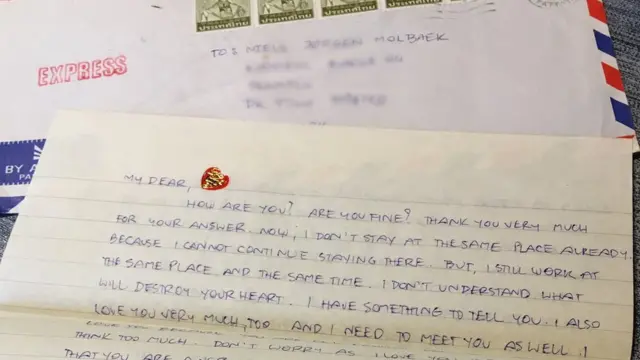 ประเทศไทย ประเทศไทย ประเทศไทย ประเทศไทย ประเทศไทย
EXPRESS
TO: NIELS JORGEN MOLBAEK
BY A
PA
MY DEAR,
HOW ARE YOU? ARE YOU FINE? THANK YOU VERY MUCH
FOR YOUR ANSWER. NOW, I DON'T STAY AT THE SAME PLACE ALREADY
BECAUSE I CANNOT CONTINUE STAYING THERE. BUT, I STILL WORK AT
THE SAME PLACE AND THE SAME TIME. I DON'T UNDERSTAND WHAT
WILL DESTROY YOUR HEART. I HAVE SOMETHING TO TELL YOU. I ALSO
LOVE YOU VERY MUCH, TOO AND I NEED TO MEET YOU AS WELL. I
THINK TOO MUCH. DON'T WORRY AS I LOVE YOU
THAT YOU ARE